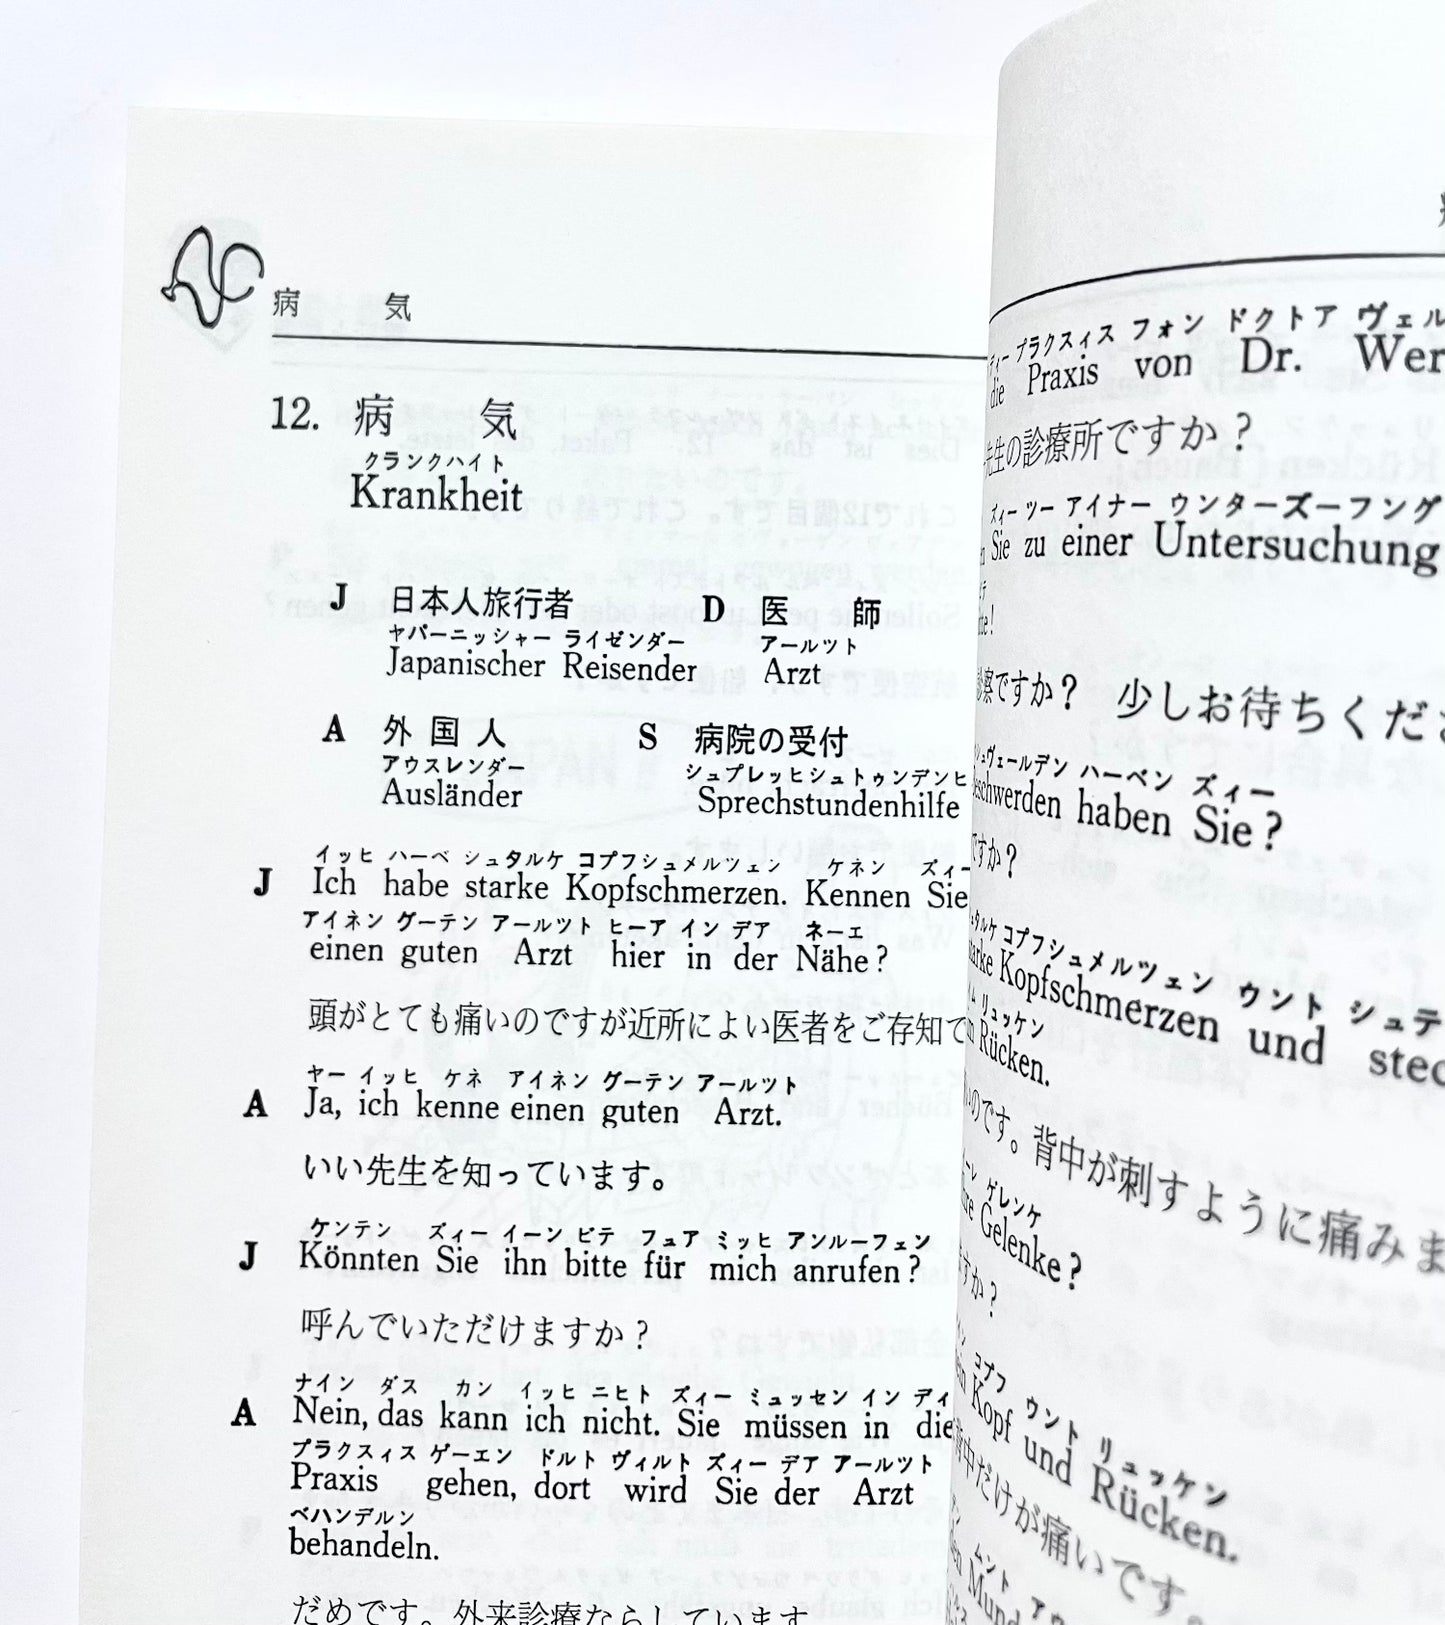 病 気
12. 病 気
クランクハイト
Krankheit
J 日本人旅行者 D 医 師
ヤパーニッシャー ライゼンダー アールツト
Japanischer Reisender Arzt
A 外 国 人 S 病院の受付
アウスレンダー シュプレッヒシュトゥンデンヒ
Ausländer Sprechstundenhilfe
イッヒ ハーベ シュタルケ コプフシュメルツェン ケネン ズィー
J Ich habe starke Kopfschmerzen. Kennen Sie
アイネン グーテン アールツト ヒーア イン デア ネーエ
einen guten Arzt hier in der Nähe?
頭がとても痛いのですが近所によい医者をご存知で
ヤー イッヒ ケネ アイネン グーテン アールツト
A Ja, ich kenne einen guten Arzt.
いい先生を知っています。
ケンテン ズィー イーン ビテ フュア ミッヒ アンルーフェン
J Könnten Sie ihn bitte für mich anrufen?
呼んでいただけますか?
ナイン ダス カン イッヒ ニヒト ズィー ミュッセン イン ディ
A Nein, das kann ich nicht. Sie müssen in die
プラクスィス ゲーエン ドルト ヴィルト ズィー デア アールツト
Praxis gehen, dort wird Sie der Arzt
ベハンデルン
behandeln.
だめです。外来診療ならしています
ディー プラクスィス フォン ドクトア ヴェル
die Praxis von Dr. Wer
先生の診療所ですか?
ズィー ツー アイナー ウンターズーフング
Sie zu einer Untersuchung
診察ですか? 少しお待ちくださ
シュヴェールデン ハーベン ズィー
eschwerden haben Sie?
ですか?
シュタルケ コプフシュメルツェン ウント シュテ
tarke Kopfschmerzen und stec
イム リュッケン
m Rücken.
いのです。背中が刺すように痛みま
ーレ ゲレンケ
hre Gelenke?
ますか?
イン コプフ ウント リュッケン
ein Kopf und Rücken.
背中だけが痛いです。
ムント アウ
en Mund